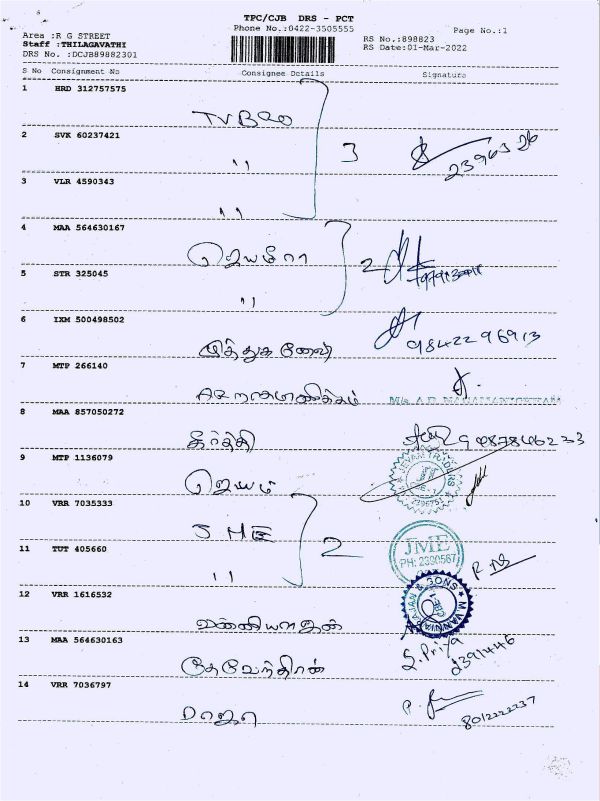 TPC/CJB DRS - PCT
Phone No.:0422-3505555
Page No.:1
Area :R G STREET
Staff :THILAGAVATHI
DRS No. :DCJB89882301
RS No.:898823
RS Date:01-Mar-2022
S No Consignment No Consignee Details Signature
1 HRD 312757575
2 SVK 60237421
" 3
3 VLR 4590343
"
4 MAA 564630167
ஜெயமீரா 2
5 STR 325045
"
6 IXM 500498502
9842296913
7 MTP 266140
8 MAA 857050272
கீர்த்தி
9 MTP 1136079
ஜெயம்
JEYAM TRADERS
10 VRR 7035333
JME 2
11 TUT 405660
"
JME
PH: 2390567
12 VRR 1616532
வன்னியராஜன்
M.VANNIYARAJAN & SONS
13 MAA 564630163
தேவேந்திரன்
S. Priya
2391446
14 VRR 7036797
ராஜா
8012222237